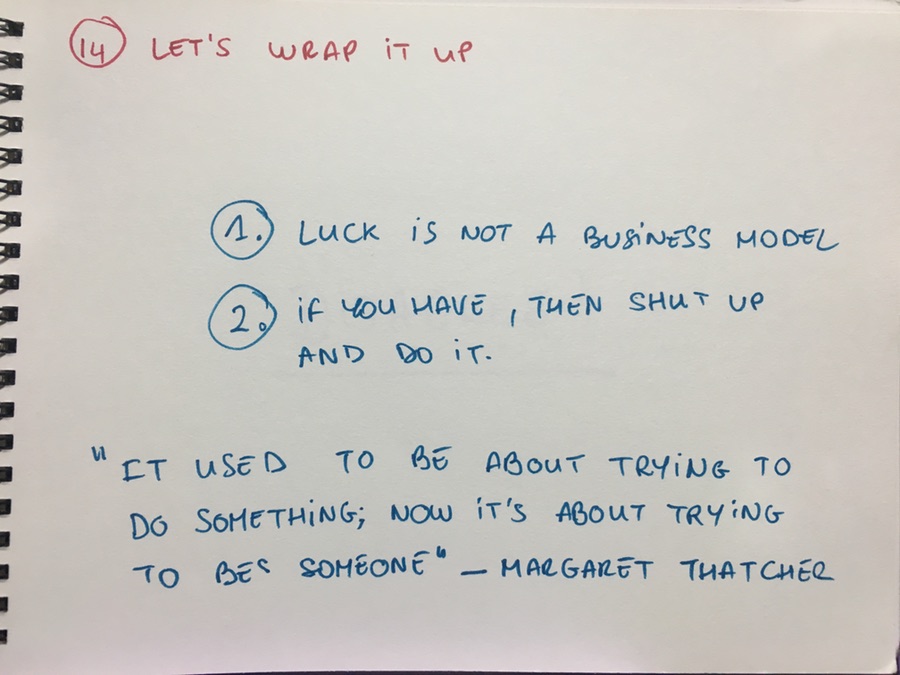 14 LET'S WRAP IT UP
1. LUCK IS NOT A BUSINESS MODEL
2. IF YOU HAVE, THEN SHUT UP
AND DO IT.
"IT USED TO BE ABOUT TRYING TO
DO SOMETHING; NOW IT'S ABOUT TRYING
TO BE SOMEONE" – MARGARET THATCHER